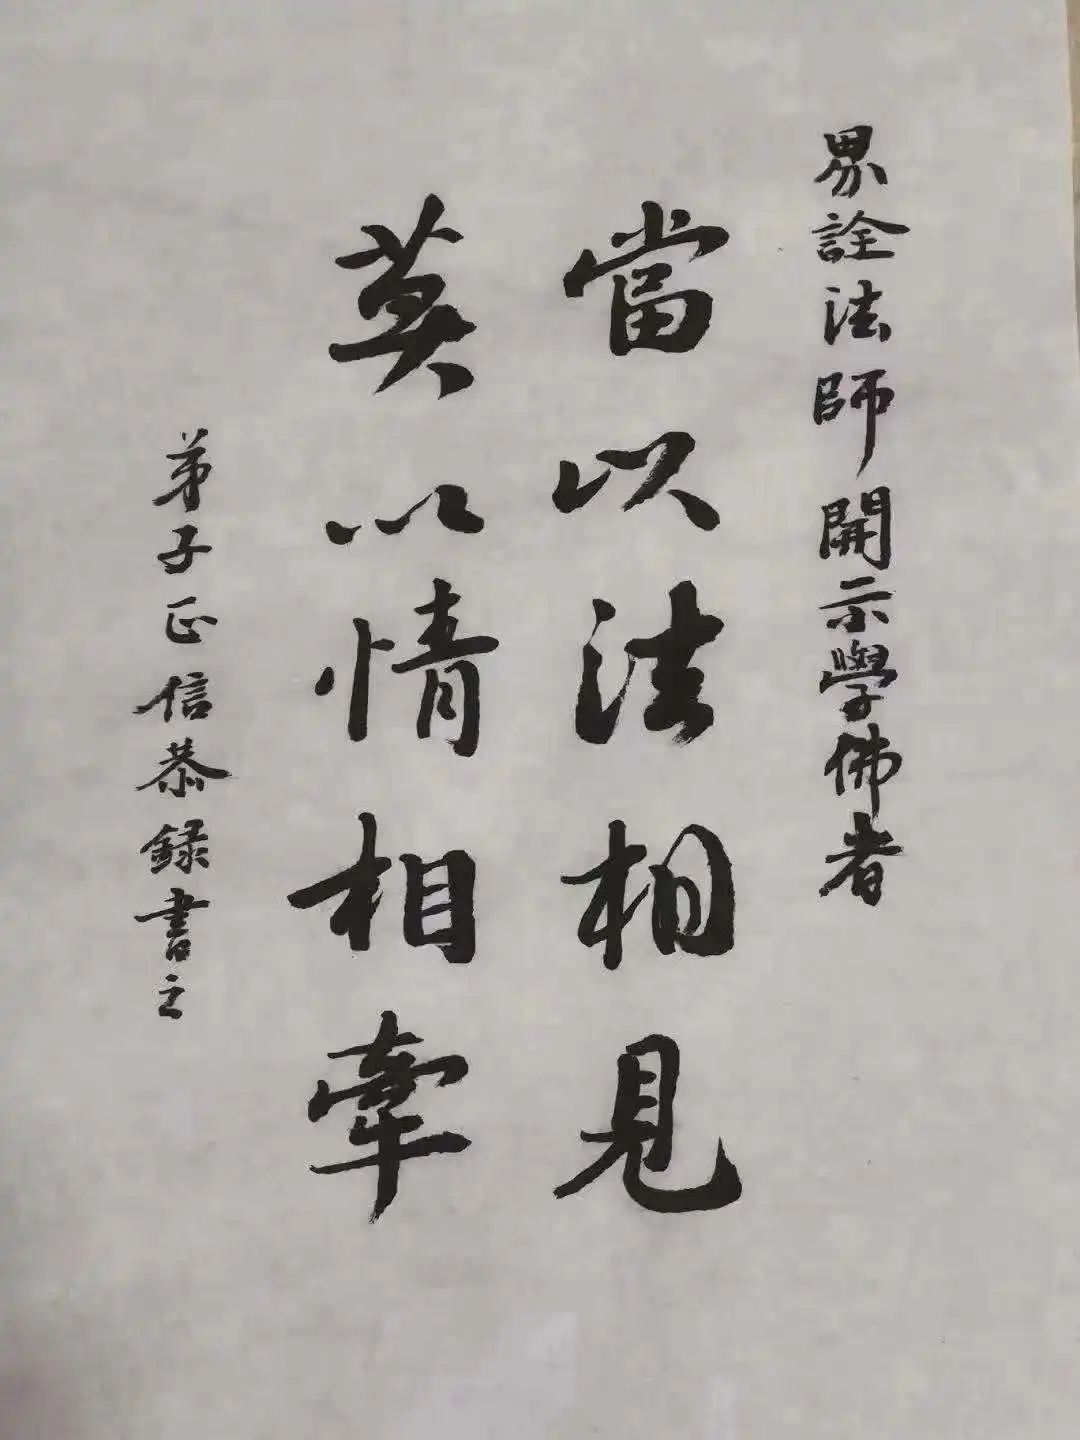 界詮法師開示學佛者
當以法相見
莫以情相牽
弟子正信恭録書之